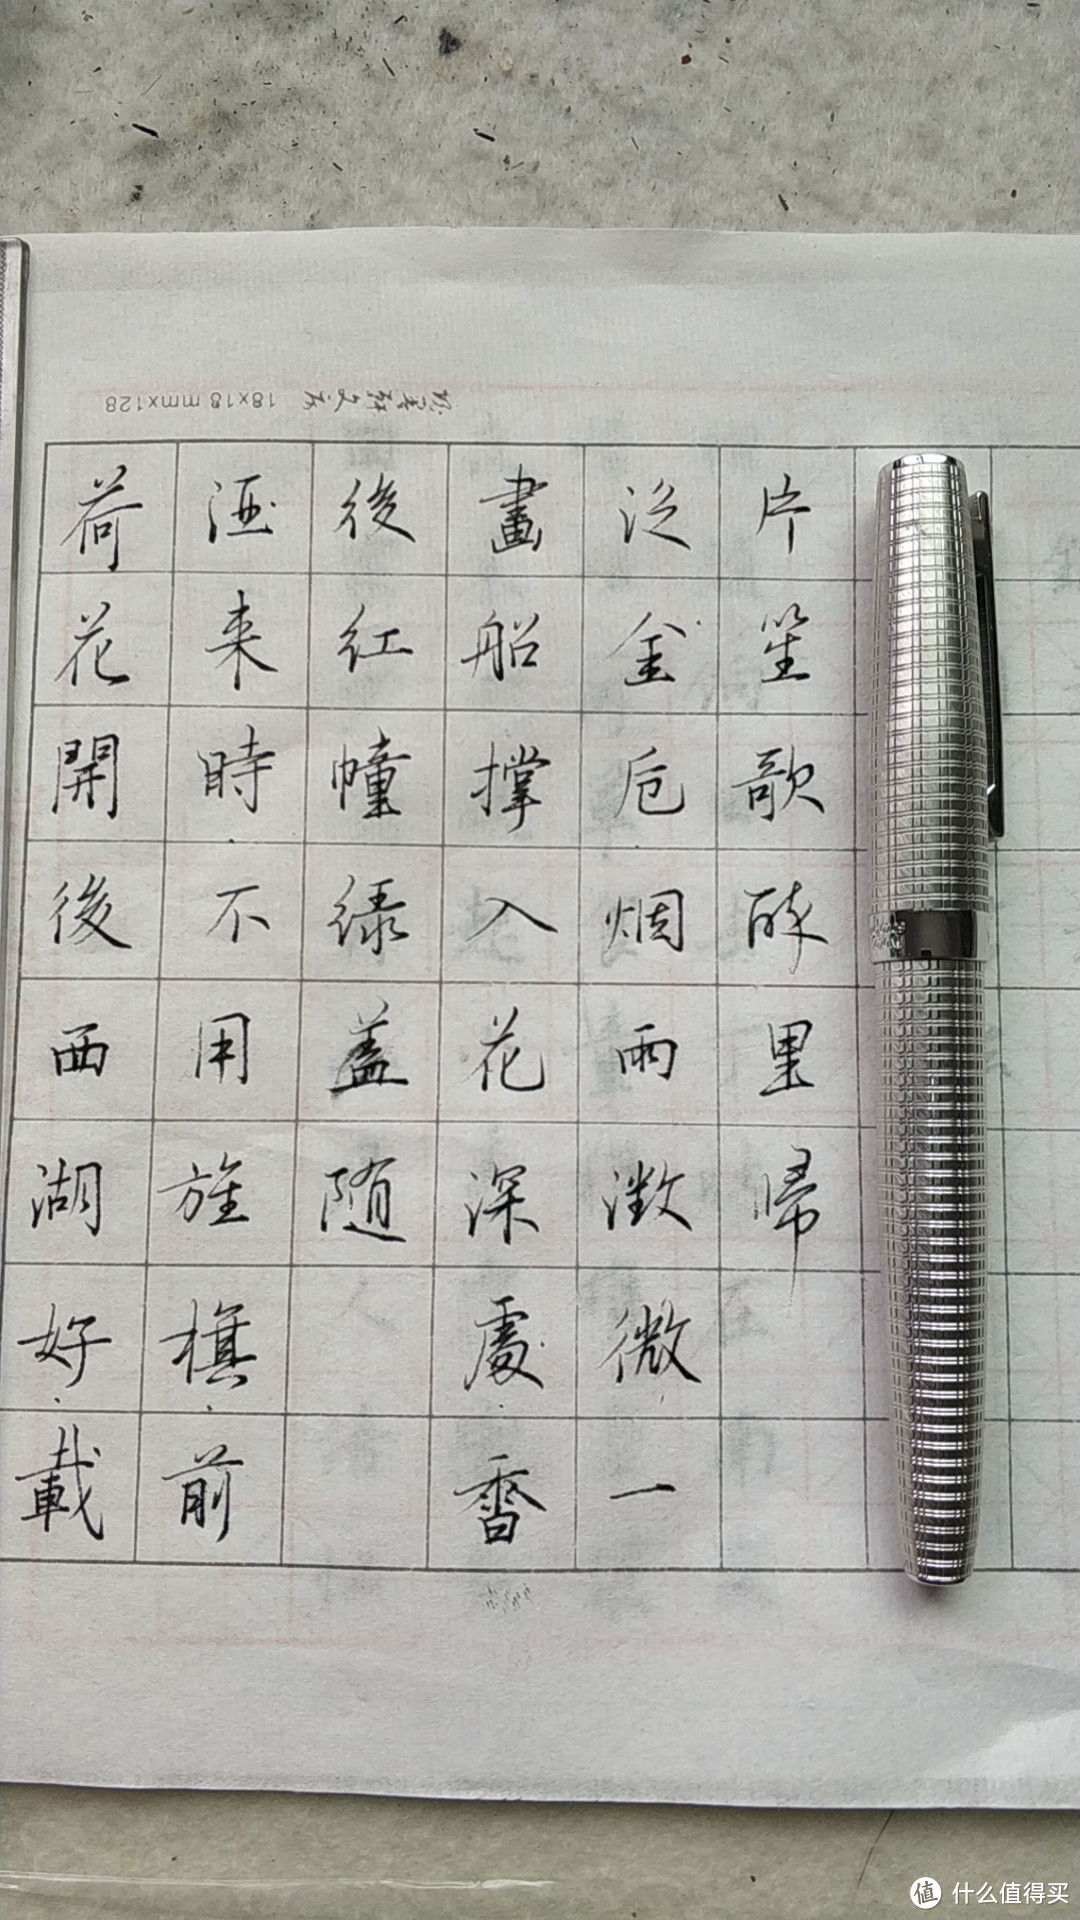 18x18 mmx128
荷花開後西湖好載
酒来時不用旌旗前
後红幢绿蓋随
畫船撑入花深處香
泛金卮烟雨溦微一
片笙歌醉里歸
值 什么值得买